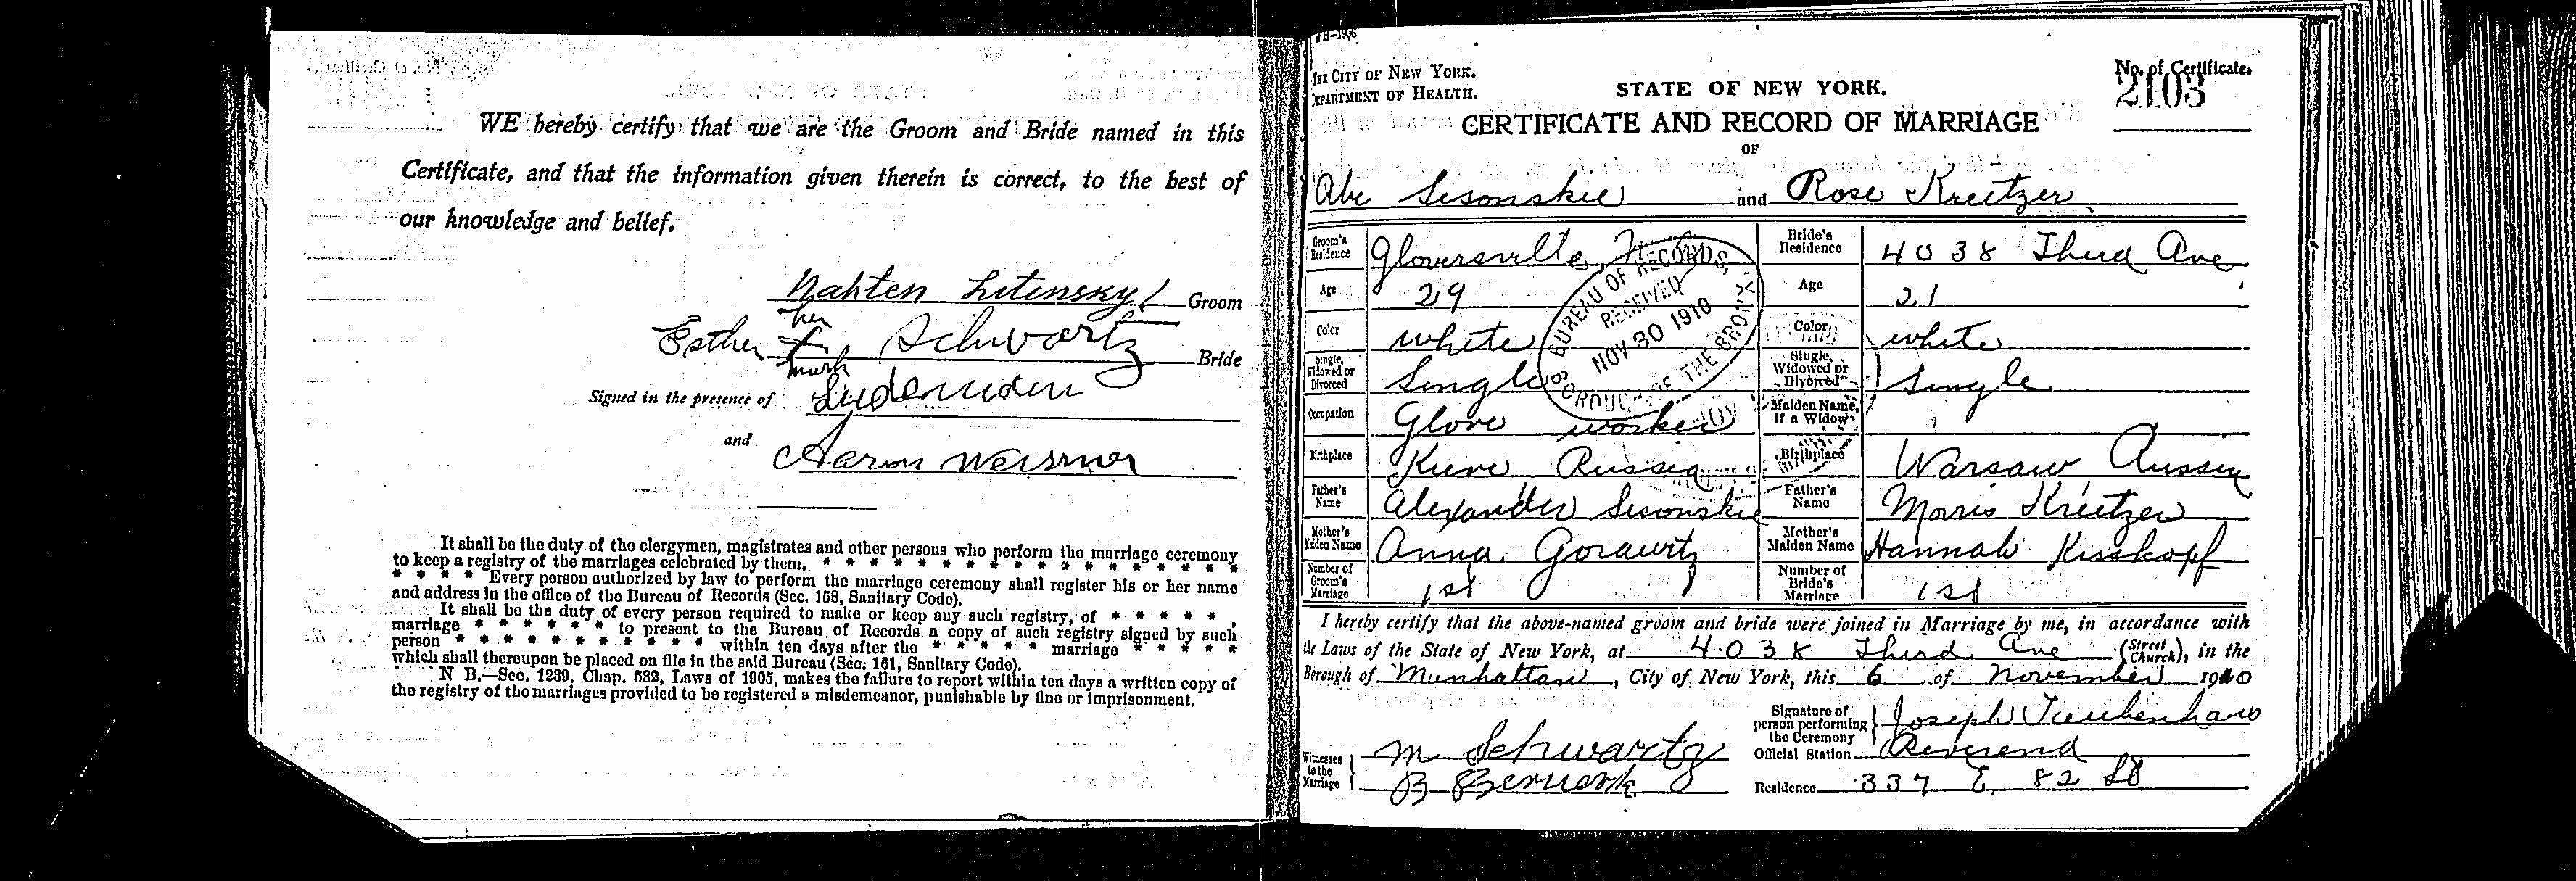 WE hereby certify that we are the Groom and Bride named in this
Certificate, and that the information given therein is correct, to the best of
our knowledge and belief.
Nahten Litinsky Groom
her
Esther X Schwartz Bride
mark
Signed in the presence of
and Aaron
It shall be the duty of the clergymen, magistrates and other persons who perform the marriage ceremony
to keep a registry of the marriages celebrated by them. * * * * * * * * * * * * * * * * * *
* * * * Every person authorized by law to perform the marriage ceremony shall register his or her name
and address in the office of the Bureau of Records (Sec. 158, Sanitary Code).
It shall be the duty of every person required to make or keep any such registry, of * * * * * ,
marriage * * * * * * to present to the Bureau of Records a copy of such registry signed by such
person * * * * * * * * * * * within ten days after the * * * * * marriage * * * * *
which shall thereupon be placed on file in the said Bureau (Sec. 161, Sanitary Code).
N B.—Sec. 1239, Chap. 532, Laws of 1905, makes the failure to report within ten days a written copy of
the registry of the marriages provided to be registered a misdemeanor, punishable by fine or imprisonment.
THE CITY OF NEW YORK.
DEPARTMENT OF HEALTH.
STATE OF NEW YORK.
No. of Certificate.
2103
CERTIFICATE AND RECORD OF MARRIAGE
OF
Abe Sesonskie and Rose Kreitzer
Groom's Residence Gloversville, N.Y. Bride's Residence 4038 Third Ave
Age 29 Age 21
Color white Color white
Single, Widowed or Divorced Single Single, Widowed or Divorced Single
Occupation Glove worker Maiden Name, if a Widow
Birthplace Kieve Russia Birthplace Warsaw Russia
Father's Name Alexander Sesonskie Father's Name Morris Kreitzer
Mother's Maiden Name Anna Gorawitz Mother's Maiden Name Hannah Kisskopf
Number of Groom's Marriage 1st Number of Bride's Marriage 1st
BUREAU OF RECORDS,
RECEIVED
NOV 30 1910
BOROUGH OF THE BRONX
I hereby certify that the above-named groom and bride were joined in Marriage by me, in accordance with
the Laws of the State of New York, at 4038 Third Ave (Street Church), in the
Borough of Manhattan, City of New York, this 6 of November 1910
Signature of person performing the Ceremony Joseph
Official Station Reverend
Witnesses to the Marriage M Schwartz
B
Residence 337 E. 82 St